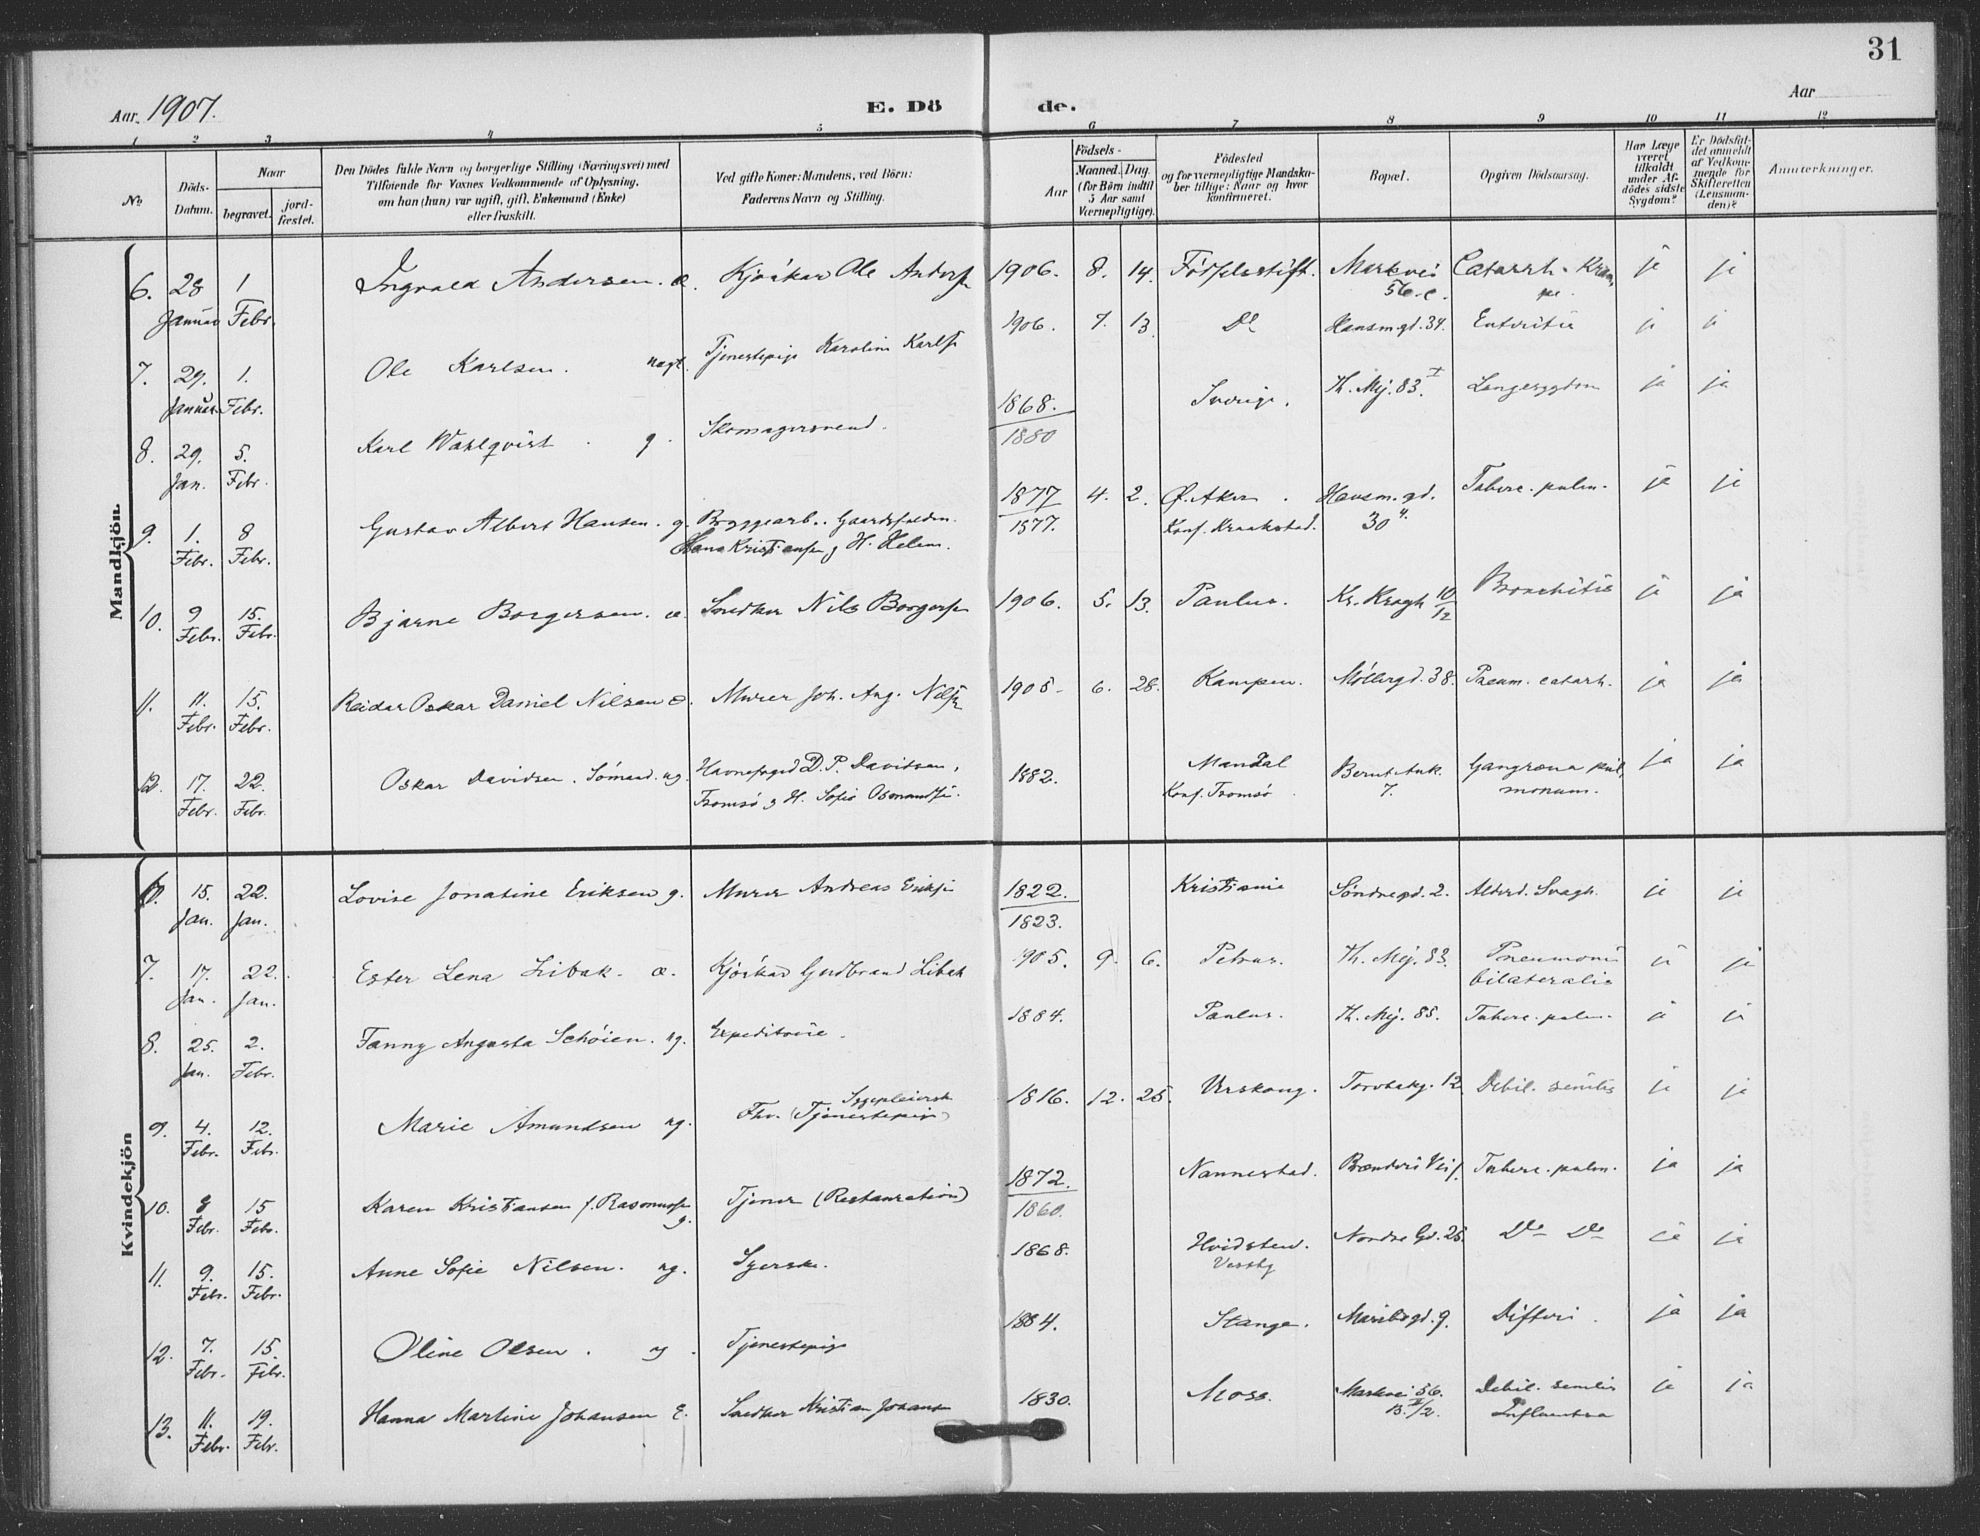 31
Aar. 1907.
E. Dö de.
Aar
1 2 3 4 5 6 7 8 9 10 11 12
No
Döds-Datum.
Naar
begravet.
jord-fæstet.
Den Dödes fulde Navn og borgerlige Stilling (Næringsvei) med
Tilföiende for Voxnes Vedkommende af Oplysning,
om han (hun) var ugift, gift, Enkemand (Enke)
eller fraskilt.
Ved gifte Koner: Mandens, ved Börn:
Faderens Navn og Stilling.
Födsels-
Aar
Maaned. Dag.
(for Börn indtil
5 Aar samt
Værnepligtige).
Födested
og for værnepligtige Mandska-
ber tillige: Naar og hvor
konfirmeret.
Bopæl.
Opgiven Dödsaarsag.
Har Læge
været
tilkaldt
under Af-
dödes sidste
Sygdom?
Er Dödsfal-
det anmeldt
af Vedkom-
mende for
Skifteretten
(Lensman-
den)?
Anmerkninger.
Mandkjön.
6. 28 Januar 1 Febr. Ingvald Andersen. æ. Kjørekar Ole Anders 1906. 8. 14. Fødselsstift. Markvei 56 c. Catarrh - ja ja
7. 29. Januar 1. Febr. Ole Karlsen. uægt. Tjenestepige Karoline Karls 1906. 7. 13 Do Hausm.gd. 34. Enteritis ja ja
8. 29. Jan. 5. Febr. Karl Wahlqvist. g. Skomagersvend. 1868. 1880 Sverige. Th. Mej. 83. I Lungesygdom ja ja
9. 1. Febr. 8 Febr. Gustav Albert Hansen. g. Bryggearb. Hans Kristians g H. Helene. 1877 1877. 4. 2. Ø. Aker. Konf. Kraakstad. Hausm. gd. 30 4. Tuberc. pulm. ja ja
10. 9 Febr. 15. Febr. Bjarne Borgersen. æ. Snedker Nils Borgers 1906. 5. 13. Paulus. Kr. Kragh 10/12 Bronchitis ja ja
11. 11. Febr. 15. Febr. Reidar Oskar Daniel Nilsen æ. Murer Joh. Aug. Nils 1905. 6. 28. Kampen. Møllergd. 38. Pneum. catarh. ja ja
12. 17. Febr. 22. Febr. Oskar Davidsen. Sømand. ug. Havnefoged D. P. Davidsen, Tromsø g H. Sofie 1882. Mandal Konf. Tromsø. Bernt Ank. 7. Gangræna pulmonum. ja ja
Kvindekjön
6. 15. Jan. 22. Jan. Lovise Jonatine Eriksen g. Murer Andreas Eriks 1822. 1823. Kristiania Søndregd. 2. Alderd. Svagh. ja ja
7. 17. Jan. 22. Jan. Ester Lena Libak. æ. Kjørekar Gudbrand Libak 1905. 9. 6. Petrus. Th. Mej. 83. Pneumoni bilateralis ja ja
8. 25. Jan. 2. Febr. Fanny Augusta Schøien. ug. Expeditrice. 1884. Paulus. Th. Mej. 85. Tuberc. pulm. ja ja
9. 4. Febr. 12. Febr. Marie Amundsen ug. Fhv. (Tjenestepige) Sygepleiersk 1816. 12. 25. Urskoug. Torvbakg. 12 Debil. senilis ja ja
10. 8 Febr. 15 Febr. Karen Kristiansen f. Rasmuss g. Tjener (Restauration) 1872. 1860. Nannestad. Brænderi Vei. Tuberc. pulm. ja ja
11. 9. Febr. 15. Febr. Anne Sofie Nilsen. ug. Syerske. 1868. Hvidsten. Vestby Nordre Gd. 26. Do Do ja ja
12. 7. Febr. 15. Febr. Oline Olsen. ug. Tjenestepige 1884. Stange. Maribogd. 9. Difteri. ja ja
13. 11. Febr. 19. Febr. Hanna Martine Johansen E. Snedker Kristian Johansen 1830. Moss. Markvei 56. Debil. senilis Influentsa ja ja